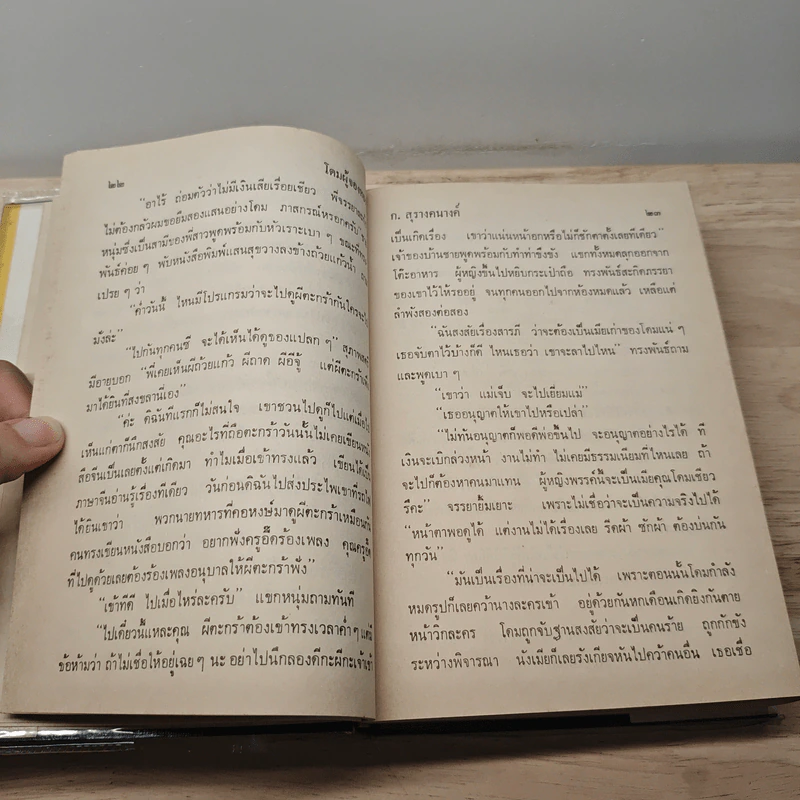 ๒๒
โดมผู้จอง
“อาไร้ ถ่อมตัวว่าไม่มีเงินเสียเรื่อยเชียว พี่จรรยา
ไม่ต้องกลัวผมขอยืมสองแสนอย่างโดม ภาสกรณ์หรอกครับ”
หนุ่มซึ่งเป็นสามีของพี่สาวพูดพร้อมกับหัวเราะเบา ๆ ขณะที่
พันธ์ค่อย ๆ พับหนังสือพิมพ์แสนสุขวางลงข้างถ้วยแก้วน้ำ
เปรย ๆ ว่า
“ค่ำวันนี้ ไหนมีโปรแกรมว่าจะไปดูผีตะกร้ากันใครจะไป
มั่งล่ะ”
“ไปกันทุกคนซี จะได้เห็นได้ดูของแปลก ๆ” สุภาพ
มีอายุบอก “พี่เคยเห็นผีถ้วยแก้ว ผีถาด ผีอีจู้ แต่ผีตะกร้าเพิ่ง
มาได้ยินที่สงขลานี่เอง”
“ค่ะ ดิฉันทีแรกก็ไม่สนใจ เขาชวนไปดูก็ไปแต่เมื่อไป
เห็นแก่ตาก็นึกสงสัย คุณอะไรที่ถือตะกร้าวันนั้นไม่เคยเขียนหนัง
สือจีนเป็นเลยตั้งแต่เกิดมา ทำไมเมื่อเข้าทรงแล้ว เขียนได้เป็น
ภาษาจีนอ่านรู้เรื่องทีเดียว วันก่อนดิฉันไปส่งประไพเขาที่รถไฟ
ได้ยินเขาว่า พวกนายทหารที่คอหงษ์มาดูผีตะกร้าเหมือนกัน
คนทรงเขียนหนังสือบอกว่า อยากฟังครูอี๊ดร้องเพลง คุณครูอี๊ด
ที่ไปดูด้วยเลยต้องร้องเพลงอนุบาลให้ผีตะกร้าฟัง”
“เข้าทีดี ไปเมื่อไหร่ละครับ” แขกหนุ่มถามทันที
“ไปเดี๋ยวนี้แหละคุณ ผีตะกร้าต้องเข้าทรงเวลาค่ำ ๆ แต่มี
ข้อห้ามว่า ถ้าไม่เชื่อให้อยู่เฉย ๆ นะ อย่าไปนึกลองดีกะผีกะเจ้าเข้า
ก. สุรางคนางค์
๒๓
เป็นเกิดเรื่อง เขาว่าแน่นหน้าอกหรือไม่ก็ชักตาตั้งเลยทีเดียว”
เจ้าของบ้านชายพูดพร้อมกับทำท่าขึงขัง แขกทั้งหมดลุกออกจาก
โต๊ะอาหาร ผู้หญิงขึ้นไปหยิบกระเป๋าถือ ทรงพันธ์สะกิดภรรยา
ของเขาไว้ให้รออยู่ จนทุกคนออกไปจากห้องหมดแล้ว เหลือแต่
ลำพังสองต่อสอง
“ฉันสงสัยเรื่องสารภี ว่าจะต้องเป็นเมียเก่าของโดมแน่ ๆ
เธอจับตาไว้บ้างก็ดี ไหนเธอว่า เขาจะลาไปไหน” ทรงพันธ์ถาม
และพูดเบา ๆ
“เขาว่า แม่เจ็บ จะไปเยี่ยมแม่”
“เธออนุญาตให้เขาไปหรือเปล่า”
“ไม่ทันอนุญาตก็พอดีพ่อขึ้นไป จะอนุญาตอย่างไรได้ ที
เงินจะเบิกล่วงหน้า งานไม่ทำ ไม่เคยมีธรรมเนียมที่ไหนเลย ถ้า
จะไปก็ต้องหาคนมาแทน ผู้หญิงพรรค์นี้จะเป็นเมียคุณโดมเชียว
รึคะ” จรรยายิ้มเยาะ เพราะไม่เชื่อว่าจะเป็นความจริงไปได้
“หน้าตาพอดูได้ แต่งานไม่ได้เรื่องเลย รีดผ้า ซักผ้า ต้องบ่นกัน
ทุกวัน”
“มันเป็นเรื่องที่น่าจะเป็นไปได้ เพราะตอนนั้นโดมกำลัง
หมดรูปก็เลยคว้านางละครเข้า อยู่ด้วยกันหกเดือนเกิดยิงกันตาย
หน้าวิกละคร โดมถูกจับฐานสงสัยว่าจะเป็นคนร้าย ถูกกักขัง
ระหว่างพิจารณา นังเมียก็เลยรังเกียจหันไปคว้าคนอื่น เธอเชื่อ